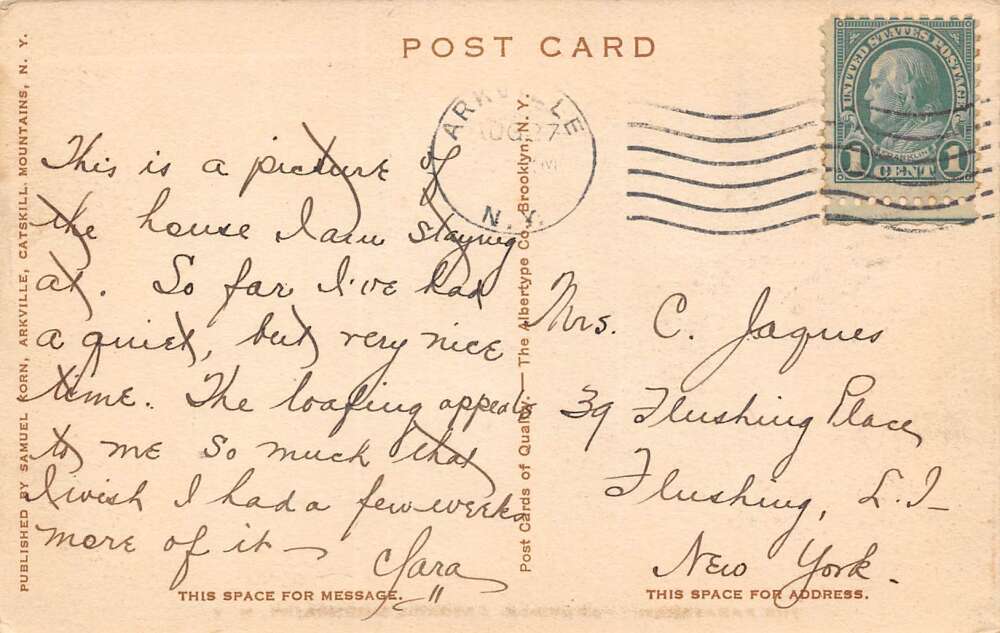 POST CARD
UNITED STATES POSTAGE
FRANKLIN
1 CENT 1
ARKVILLE
AUG 27
M
N. Y.
This is a picture of
the house I am staying
at. So far I've had
a quiet, but very nice
time. The loafing appeals
to me so much that
I wish I had a few weeks
more of it —
Clara
Mrs. C. Jaques
39 Flushing Place,
Flushing, L.I —
New York.
THIS SPACE FOR MESSAGE.
THIS SPACE FOR ADDRESS.
PUBLISHED BY SAMUEL KORN, ARKVILLE, CATSKILL MOUNTAINS, N. Y.
Post Cards of Quality. — The Albertype Co., Brooklyn, N. Y.